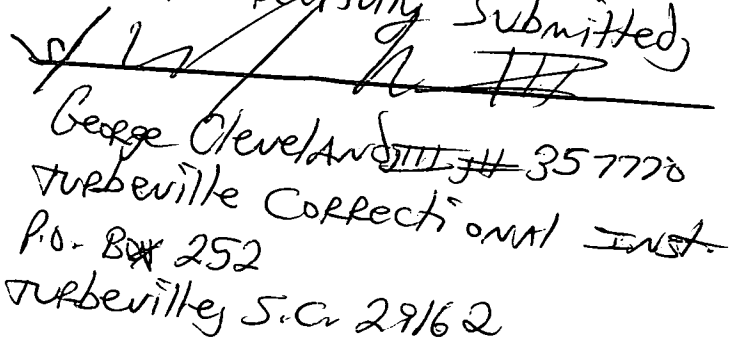 Submitted,
George Cleveland III, # 357770
Turbeville Correctional Inst.
P.O. Box 252
Turbeville, S.C. 29162